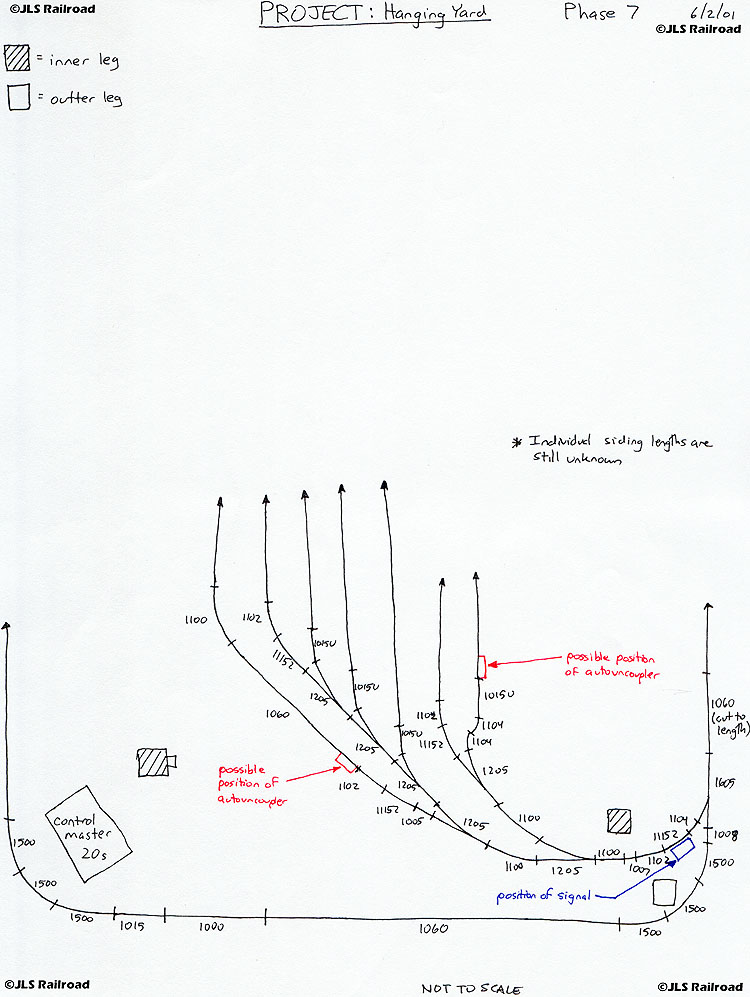 ©JLS Railroad
PROJECT: Hanging Yard
Phase 7
6/2/01
©JLS Railroad
= inner leg
= outter leg
* Individual siding lengths are
still unknown
1100
1102
11152
1015U
1205
1015U
1060
1205
1015U
1205
possible
position of
autouncoupler
1102
11152
1005
1205
1102
11152
1104
1104
1015U
1205
possible position
of autouncoupler
1100
1100
1205
1100
1007
1102
11152
1104
1008
1500
1605
1060
(cut to
length)
position of signal
control
master
20s
1500
1500
1500
1015
1000
1060
1500
1500
©JLS Railroad
NOT TO SCALE
©JLS Railroad